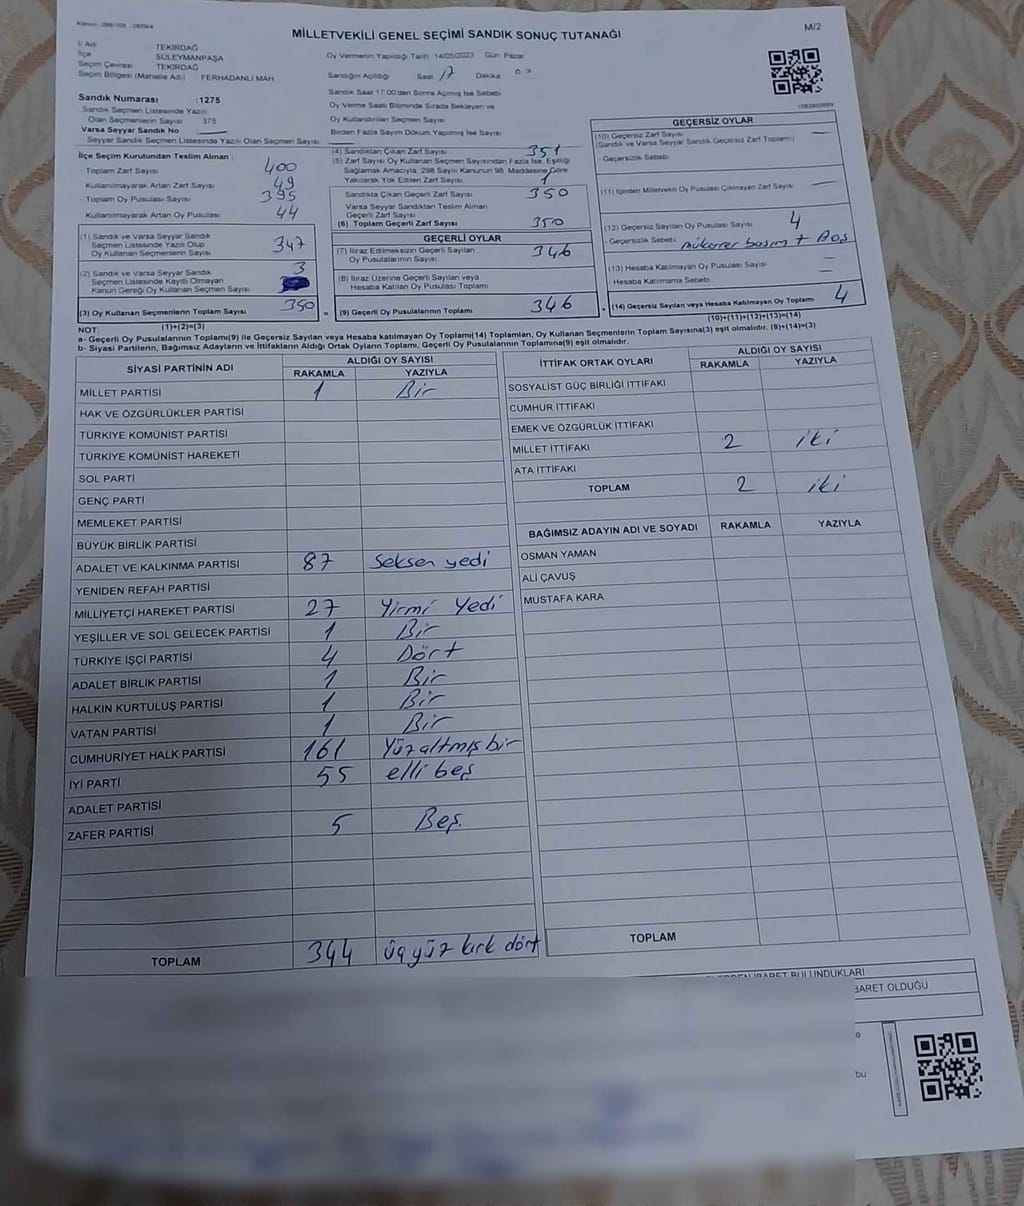 MİLLETVEKİLİ GENEL SEÇİMİ SANDIK SONUÇ TUTANAĞI
M/2
İl Adı TEKİRDAĞ
İlçe SÜLEYMANPAŞA
Seçim Çevresi TEKİRDAĞ
Seçim Bölgesi (Mahalle Adı) FERHADANLI MAH.
Oy Vermenin Yapıldığı Tarih 14/05/2023 Gün Pazar
Sandığın Açıldığı Saat 17 Dakika 00
Sandık Saat 17.00'den Sonra Açılmış İse Sebebi
Oy Verme Saati Bitiminde Sırada Bekleyen ve
Oy Kullandırılan Seçmen Sayısı
Birden Fazla Sayım Döküm Yapılmış İse Sayısı
Sandık Numarası :1275
Sandık Seçmen Listesinde Yazılı
Olan Seçmenlerin Sayısı 375
Varsa Seyyar Sandık No
Seyyar Sandık Seçmen Listesinde Yazılı Olan Seçmen Sayısı
İlçe Seçim Kurulundan Teslim Alınan :
Toplam Zarf Sayısı 400
Kullanılmayarak Artan Zarf Sayısı 49
Toplam Oy Pusulası Sayısı 395
Kullanılmayarak Artan Oy Pusulası 44
(1) Sandık ve Varsa Seyyar Sandık
Seçmen Listesinde Yazılı Olup
Oy Kullanan Seçmenlerin Sayısı 347
(2) Sandık ve Varsa Seyyar Sandık
Seçmen Listesinde Kayıtlı Olmayan
Kanun Gereği Oy Kullanan Seçmen Sayısı 3
(3) Oy Kullanan Seçmenlerin Toplam Sayısı 350
(1)+(2)=(3)
(4) Sandıktan Çıkan Zarf Sayısı 351
(5) Zarf Sayısı Oy Kullanan Seçmen Sayısından Fazla İse, Eşitliği
Sağlamak Amacıyla, 298 Sayılı Kanunun 98. Maddesine Göre
Yakılarak Yok Edilen Zarf Sayısı 1
Sandıkta Çıkan Geçerli Zarf Sayısı 350
Varsa Seyyar Sandıktan Teslim Alınan
Geçerli Zarf Sayısı
(6) Toplam Geçerli Zarf Sayısı 350
GEÇERLİ OYLAR
(7) İtiraz Edilmeksizin Geçerli Sayılan
Oy Pusulalarının Sayısı 346
(8) İtiraz Üzerine Geçerli Sayılan veya
Hesaba Katılan Oy Pusulası Toplamı
= (9) Geçerli Oy Pusulalarının Toplamı 346
GEÇERSİZ OYLAR
(10) Geçersiz Zarf Sayısı
(Sandık ve Varsa Seyyar Sandık Geçersiz Zarf Toplamı)
Geçersizlik Sebebi
(11) İçinden Milletvekili Oy Pusulası Çıkmayan Zarf Sayısı
(12) Geçersiz Sayılan Oy Pusulası Sayısı 4
Geçersizlik Sebebi mükerrer basım + Boş
(13) Hesaba Katılmayan Oy Pusulası Sayısı
Hesaba Katılmama Sebebi
+ (14) Geçersiz Sayılan veya Hesaba Katılmayan Oy Toplamı 4
(10)+(11)+(12)+(13)=(14)
NOT:
a- Geçerli Oy Pusulalarının Toplamı(9) ile Geçersiz Sayılan veya Hesaba Katılmayan Oy Toplamı(14) Toplamları, Oy Kullanan Seçmenlerin Toplam Sayısına(3) eşit olmalıdır. (9)+(14)=(3)
b- Siyasi Partilerin, Bağımsız Adayların ve İttifakların Aldığı Ortak Oyların Toplamı, Geçerli Oy Pusulalarının Toplamına(9) eşit olmalıdır.
SİYASİ PARTİNİN ADI ALDIĞI OY SAYISI
RAKAMLA YAZIYLA
MİLLET PARTİSİ 1 Bir
HAK VE ÖZGÜRLÜKLER PARTİSİ
TÜRKİYE KOMÜNİST PARTİSİ
TÜRKİYE KOMÜNİST HAREKETİ
SOL PARTİ
GENÇ PARTİ
MEMLEKET PARTİSİ
BÜYÜK BİRLİK PARTİSİ
ADALET VE KALKINMA PARTİSİ 87 Seksen yedi
YENİDEN REFAH PARTİSİ
MİLLİYETÇİ HAREKET PARTİSİ 27 Yirmi Yedi
YEŞİLLER VE SOL GELECEK PARTİSİ 1 Bir
TÜRKİYE İŞÇİ PARTİSİ 4 Dört
ADALET BİRLİK PARTİSİ 1 Bir
HALKIN KURTULUŞ PARTİSİ 1 Bir
VATAN PARTİSİ 1 Bir
CUMHURİYET HALK PARTİSİ 161 Yüzaltmışbir
İYİ PARTİ 55 elli beş
ADALET PARTİSİ
ZAFER PARTİSİ 5 Beş
TOPLAM 344 üçyüz kırk dört
İTTİFAK ORTAK OYLARI ALDIĞI OY SAYISI
RAKAMLA YAZIYLA
SOSYALİST GÜÇ BİRLİĞİ İTTİFAKI
CUMHUR İTTİFAKI
EMEK VE ÖZGÜRLÜK İTTİFAKI
MİLLET İTTİFAKI 2 iki
ATA İTTİFAKI
TOPLAM 2 iki
BAĞIMSIZ ADAYIN ADI VE SOYADI RAKAMLA YAZIYLA
OSMAN YAMAN
ALİ ÇAVUŞ
MUSTAFA KARA
TOPLAM
İBARET BULUNDUKLARI
BARET OLDUĞU
bu